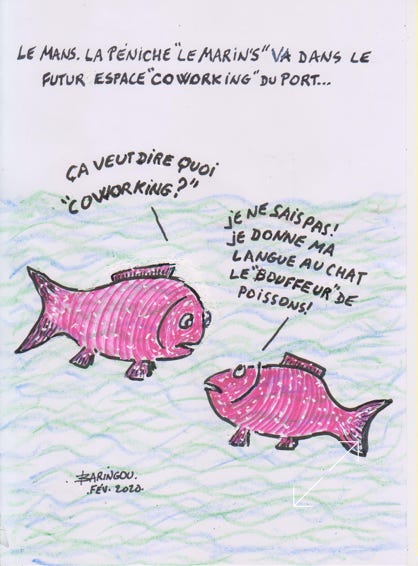 LE MANS. LA PÉNICHE "LE MARIN'S" VA DANS LE
FUTUR ESPACE "COWORKING" DU PORT...
ÇA VEUT DIRE QUOI
"COWORKING?"
JE NE SAIS PAS!
JE DONNE MA
LANGUE AU CHAT
LE "BOUFFEUR" DE
POISSONS!
BARINGOU
.FÉV. 2020.